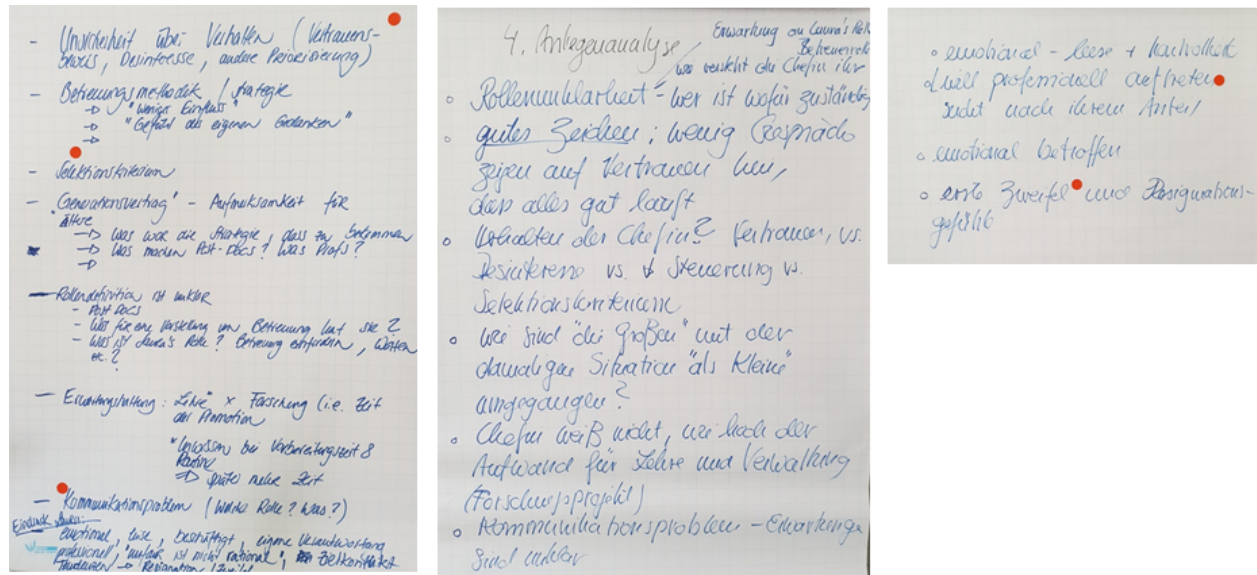 - Unsicherheit über Verhalten (Vertrauens-
beweis, Desinteresse, andere Priorisierung)
- Betreuungsmethodik / strategie
→ "weniger Einfluss"
→ "Gefühl des eigenen Gedanken"
→
- Selektionskriterium
- Generationsvertrag" - Aufmerksamkeit für
"ältere
→ Was war die Strategie, dass zu bekommen
→ Was machen Post-Docs? Was Profs?
→
- Rollendefinition ist unklar
- Post Docs
- Was für eine Vorstellung von Betreuung hat sie?
- Was ist Laura's Rolle? Betreuung einfordern, Warten
etc.?
- Erwartungshaltung: Lehre" x Forschung (i.e. Zeit
der Promotion
"Unwissen bei Vorbereitungszeit &
Routine
⇒ später mehr Zeit
- Kommunikationsproblem (Welche Rolle? Was?)
Eindruck
- emotional, leise, beschäftigt, eigene Verantwortung
professionell, "unfair ist nicht rational", Zielkonflikt
Tendenzen → Resignation / Zweifel
4. Anliegenanalyse
Erwartung an Laura's Rolle
Betreuerrolle
wie versteht die Chefin ihr
o Rollenunklarheit - wer ist wofür zuständig
o gutes Zeichen: wenig Gespräch
zeigen auf Vertrauen hin,
dass alles gut läuft
o Verhalten der Chefin? Vertrauen, vs.
Desinteresse vs. Steuerung vs.
Selektionskriterium
o wie sind "die Großen" mit der
damaligen Situation "als Kleine"
umgegangen?
o Chefin weiß nicht, wie hoch der
Aufwand für Lehre und Verwaltung
(Forschungsprojekt)
o Kommunikationsproblem - Erwartungen
sind unklar
o emotional - leise +
will professionell auftreten
sucht nach ihrem Anteil
o emotional betroffen
o erste Zweifel und Resignations-
gefühle